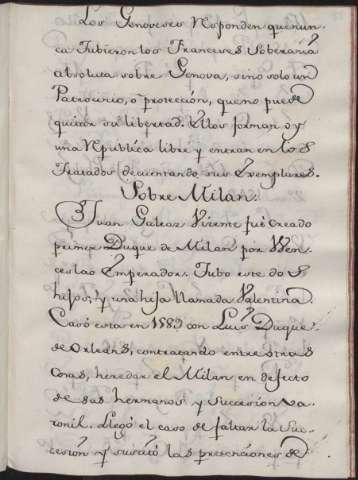 Los Genoveses responden que nun-
ca tubieron los Franceses Soberania
absoluta sobre Genova, sino solo un
Patrocinio, o protección, que no puede
quitar su libertad. Ellos forman oy
una Republica libre y entran en los
Tratados de cuentando sus Exemplares.
Sobre Milan.
Juan Galeaz Vizente fue creado
primer Duque de Milan por Wen-
ceslao Emperador. Tubo este dos
hijos, y una hija llamada Valentina.
Casó esta en 1389 con Luis Duque
de Orleans, contratando entre otras
cosas, heredar el Milan en defecto
de sus hermanos y Succesion va-
ronil. Llegó el caso de faltar la Suc-
cesion y suscitó las pretensiones de